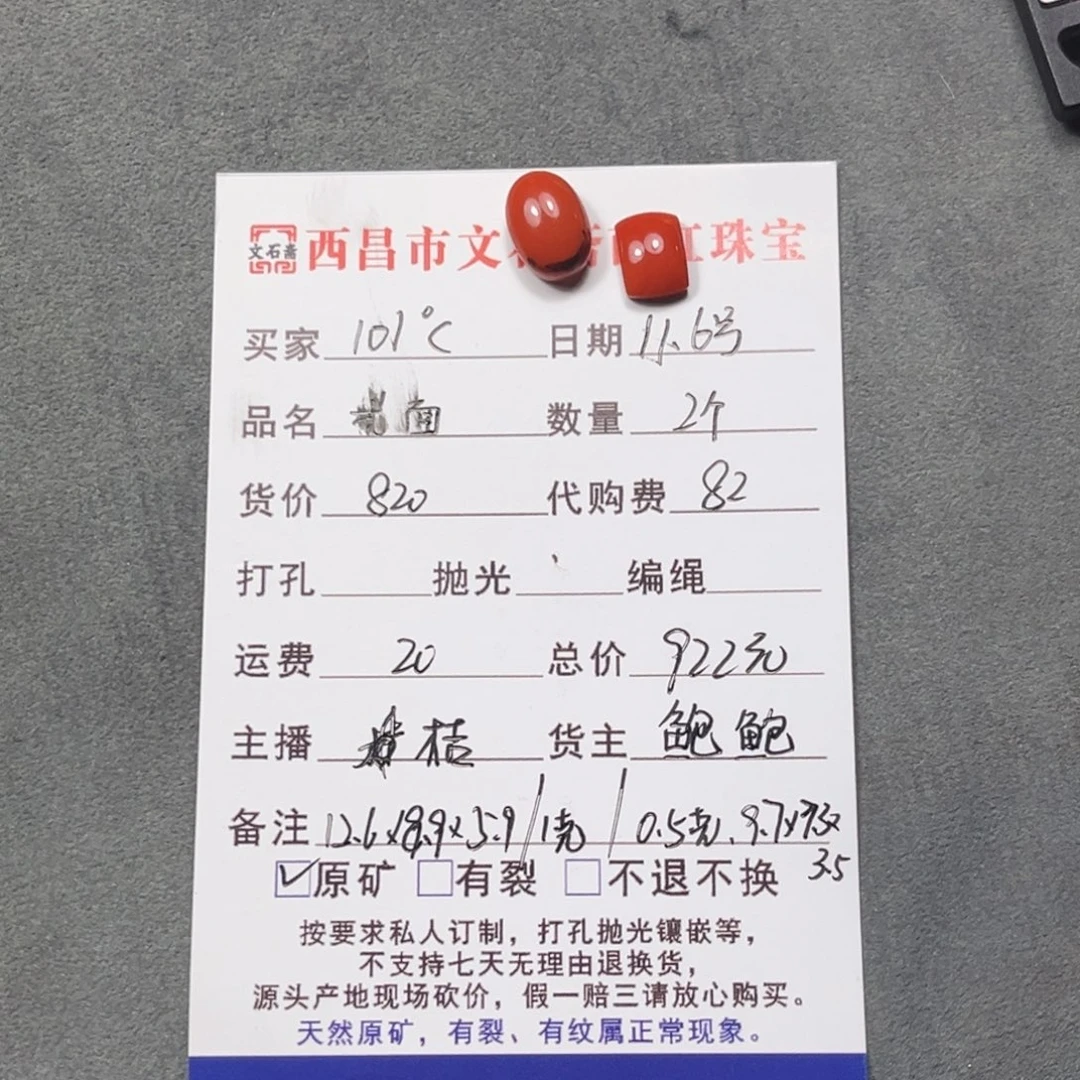 文石斋 西昌市文 红珠宝
买家 101℃ 日期 11.6号
品名 面 数量 2个
货价 820 代购费 82
打孔 抛光 编绳
运费 20 总价 922元
主播 桔 货主 鲍鲍
备注 12.6x8.9x5.9/1克/0.5克. 9.7x7.3x
3.5
✓原矿 □有裂 □不退不换
按要求私人订制，打孔抛光镶嵌等，
不支持七天无理由退换货，
源头产地现场砍价，假一赔三请放心购买。
天然原矿，有裂、有纹属正常现象。